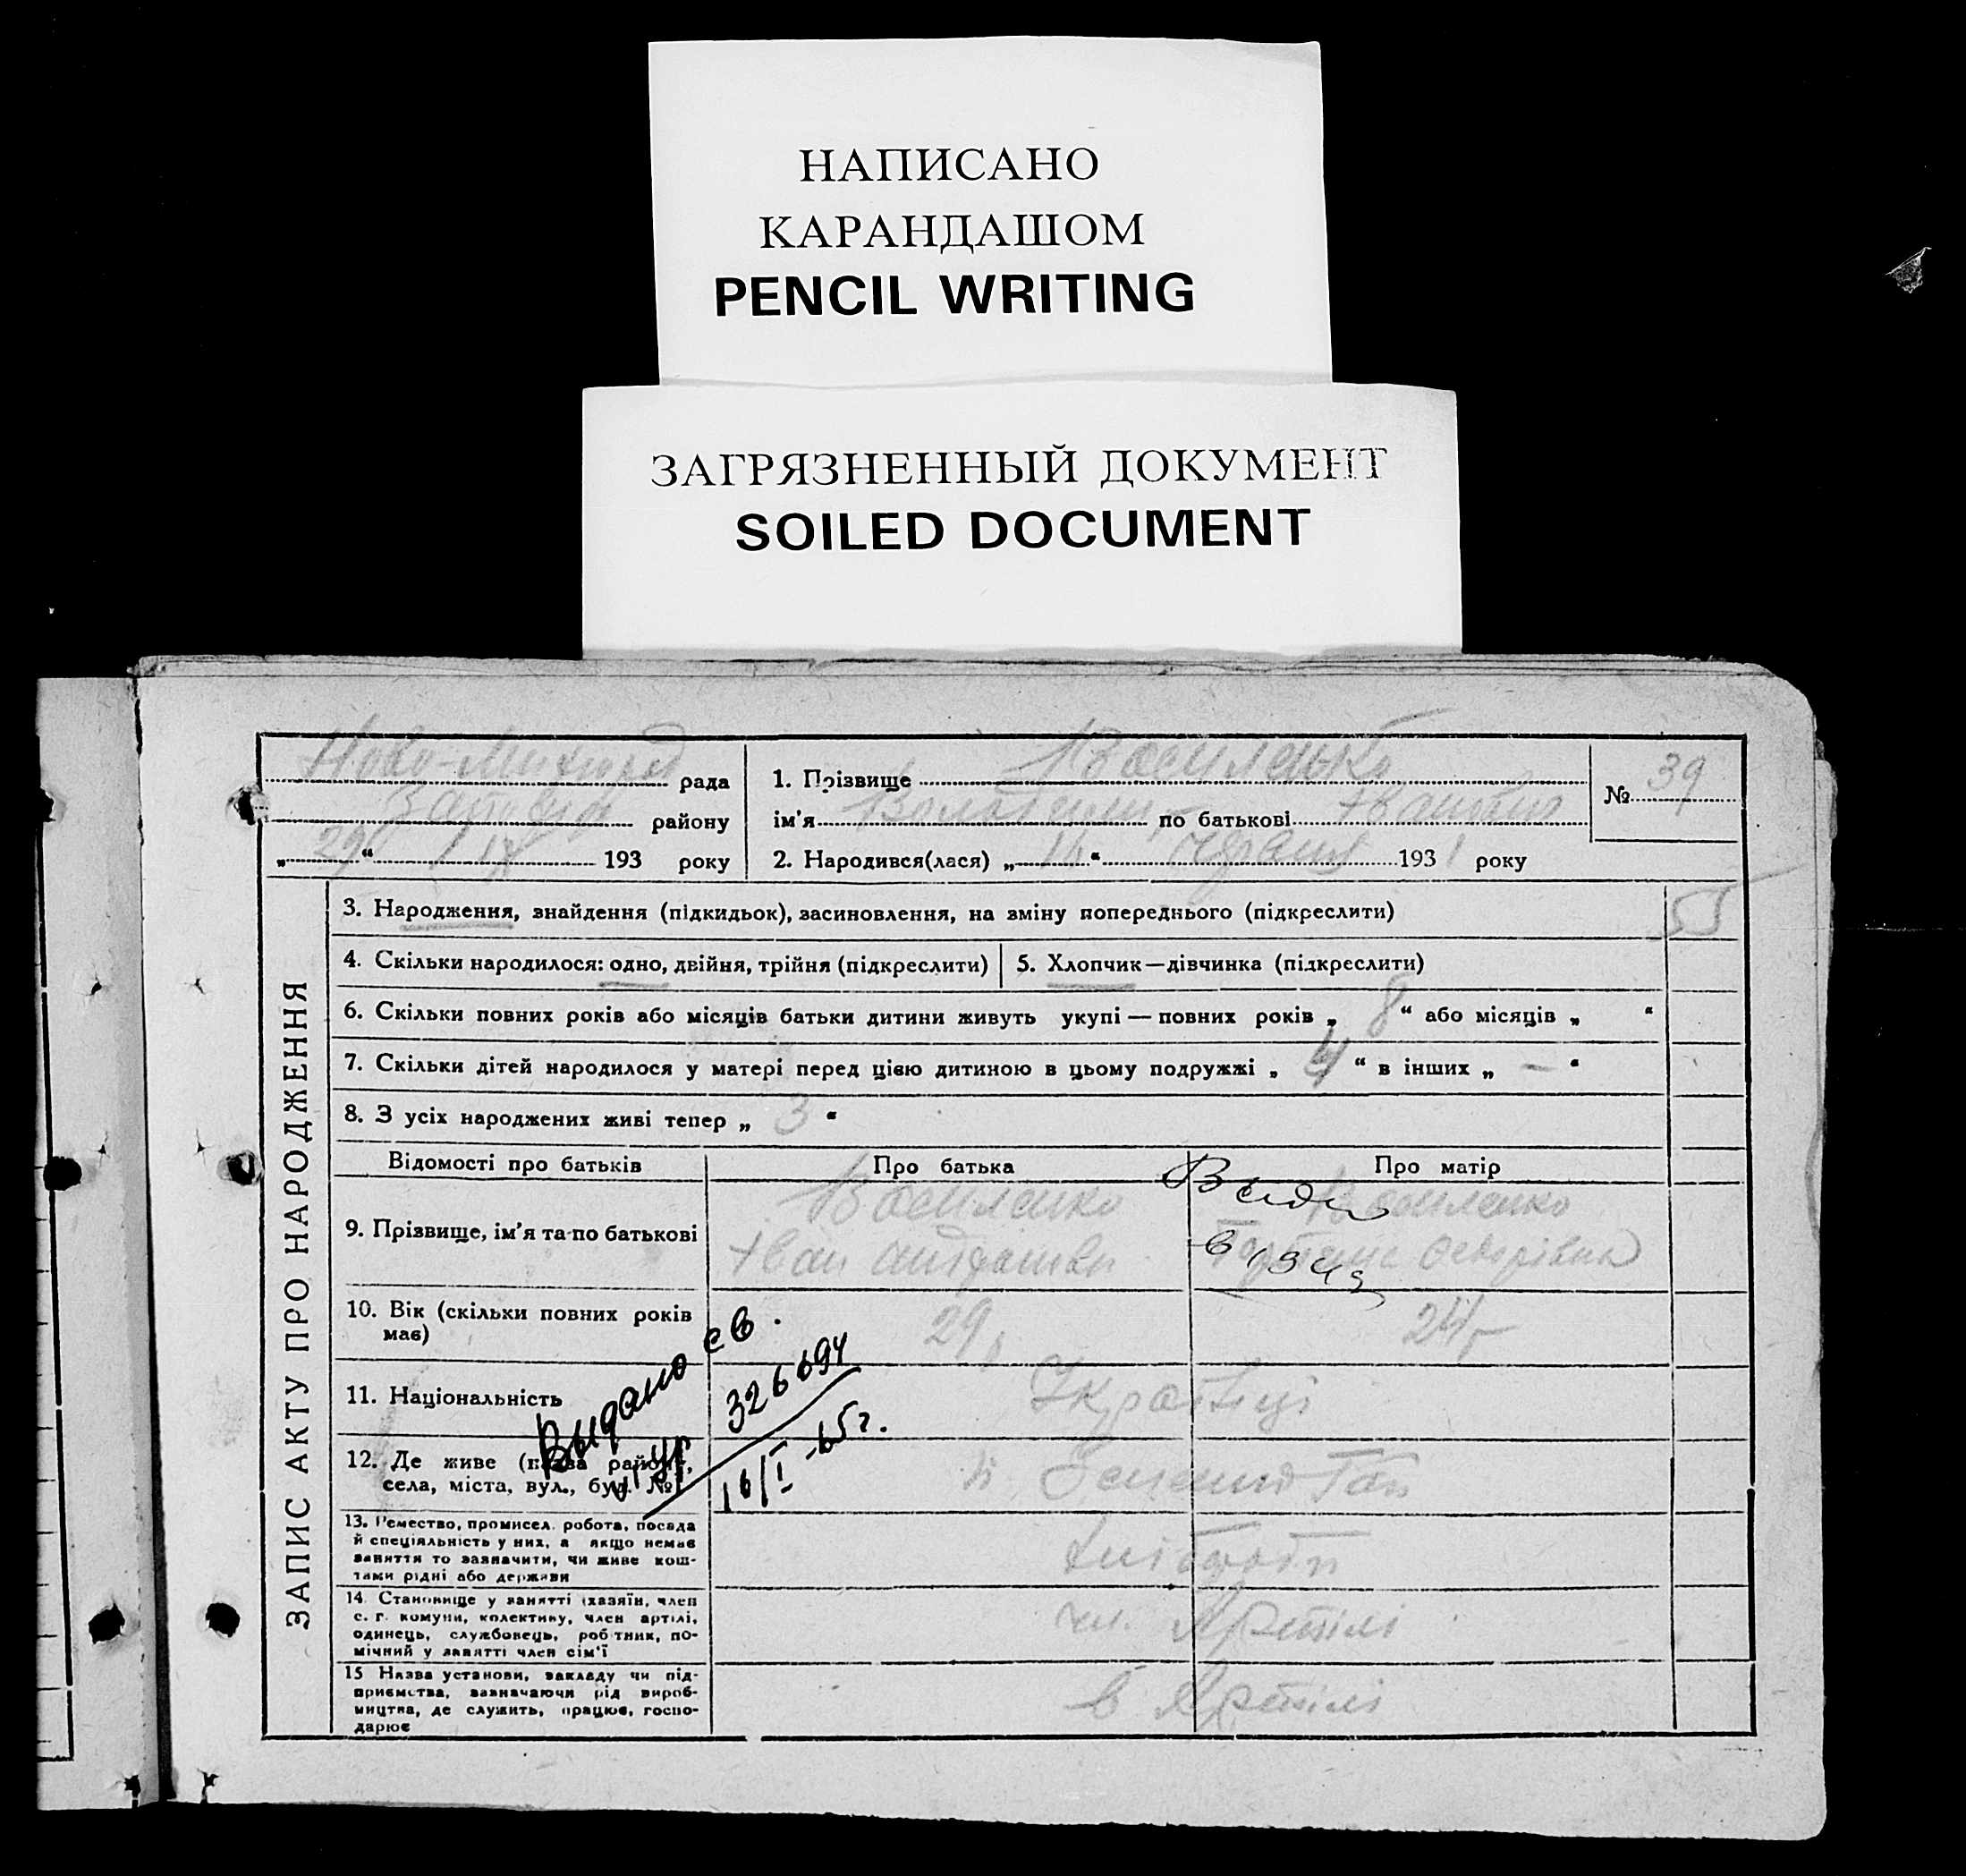 НАПИСАНО
КАРАНДАШОМ
PENCIL WRITING
ЗАГРЯЗНЕННЫЙ ДОКУМЕНТ
SOILED DOCUMENT
рада
району
„29“ 193 року
1. Прізвище Василенко
ім'я по батькові
2. Народився(лася) „ “ 1931 року
№ 39
ЗАПИС АКТУ ПРО НАРОДЖЕННЯ
3. Народження, знайдення (підкидьок), засиновлення, на зміну попереднього (підкреслити)
55
4. Скільки народилося: одно, двійня, трійня (підкреслити)
5. Хлопчик—дівчинка (підкреслити)
6. Скільки повних років або місяців батьки дитини живуть укупі — повних років „ 8 “ або місяців „ “
7. Скільки дітей народилося у матері перед цією дитиною в цьому подружжі „ 4 “ в інших „ — “
8. З усіх народжених живі тепер „ 3 “
Відомості про батьків
Про батька
Про матір
9. Прізвище, ім'я та по батькові
Василенко
Іван
Василенко
10. Вік (скільки повних років
має)
29
24
11. Національність
Українці
12. Де живе (назва району,
села, міста, вул., буд. №)
Выдано св.
326694
16/I-65г.
13. Ремество, промисел, робота, посада
й спеціяльність у них, а якщо немає
заняття то зазначити, чи живе кош-
тами рідні або держави
14. Становище у занятті (хазяїн, член
с. г. комуни, колективу, член артілі,
одинець, службовець, робітник, по-
мічний у занятті член сім'ї
чл. Артілі
15 Назва установи, закладу чи під-
приємства, зазначаючи рід вироб-
ництва, де служить, працює, госпо-
дарює
в Артілі